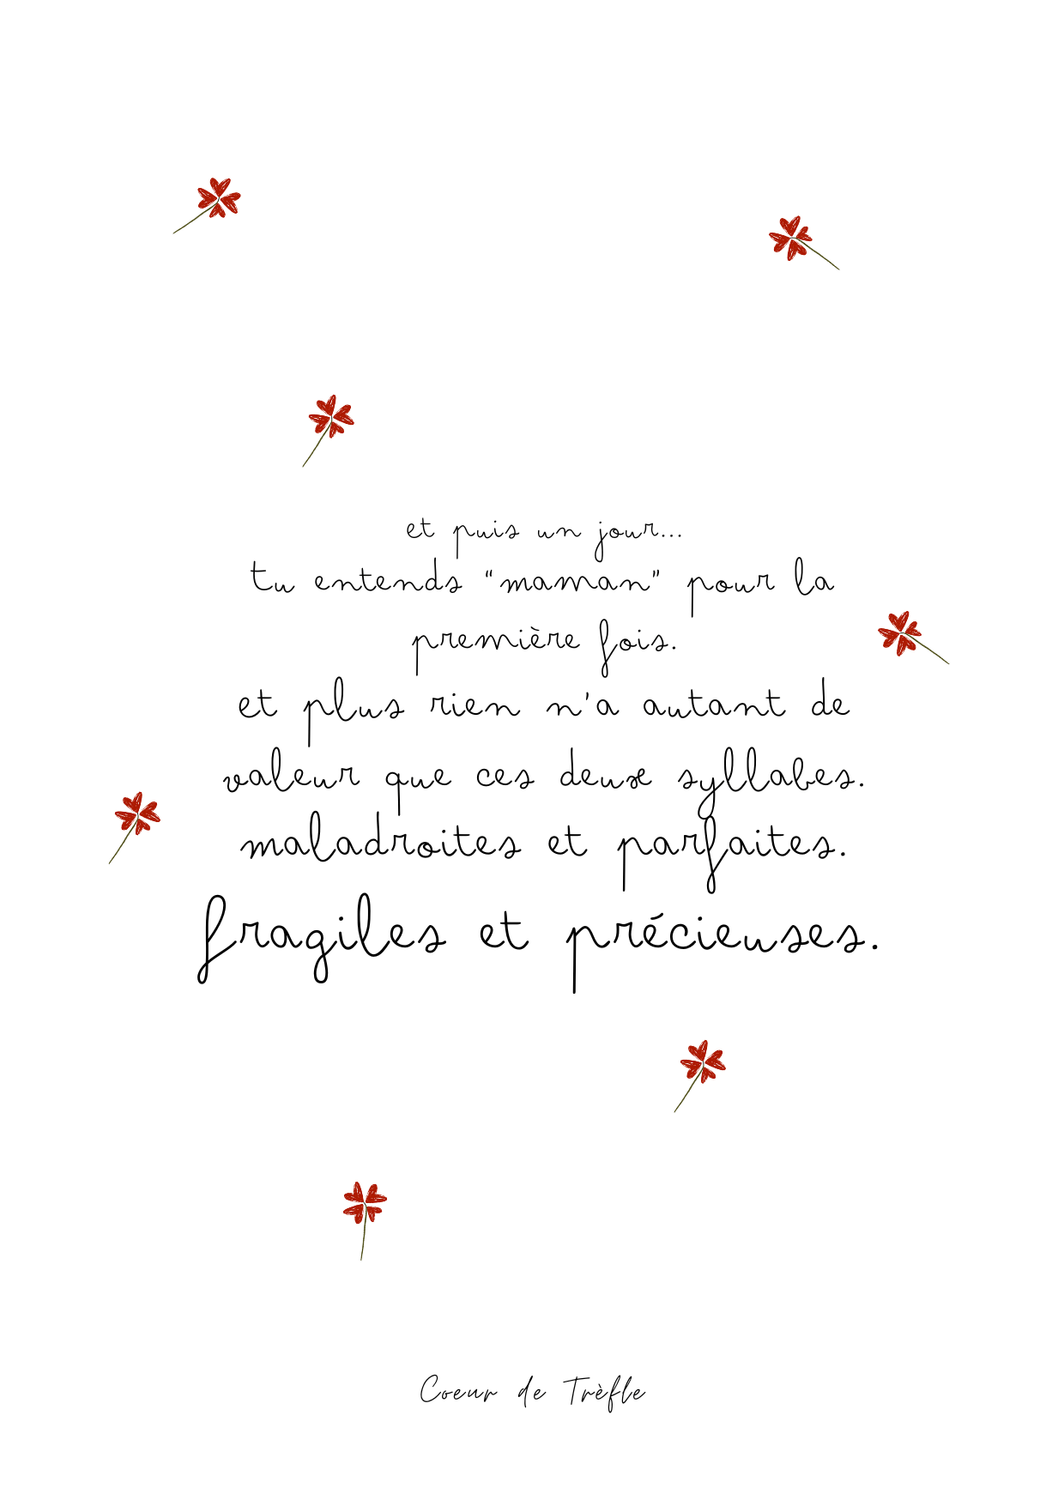 et puis un jour...
tu entends “maman” pour la
première fois.
et plus rien n'a autant de
valeur que ces deux syllabes.
maladroites et parfaites.
fragiles et précieuses.
Coeur de Trèfle